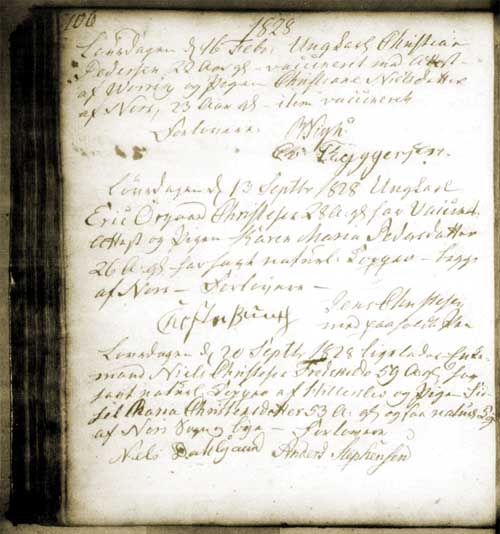 106
1828
Løverdagen d. 16 Febr. Ungkarl Christian
Pedersen, 22 Aar gl. vaccineret med Attest
af og Pigen Christiane Nielsdatter
af Nors, 23 Aar gl. item vaccineret
Forlovere.
Løverdagen d. 13 Septbr 1828 Ungkarl
Eric Christens. 28 A. gl. har Vaccinat.
Attest og Pigen Karen Maria Pedersdatter
26 A. gl. har havt naturl. Kopper — begge
af Nors — Forlovere —
Jens Christensen
med paaholdt Pen
Løverdagen d. 20 Septbr 1828 ligeledes Enke-
mand Niels Christens. 59 A. gl. har
havt naturl. Kopper af Hillerslev og Pigen
Maria Christensdatter 53 A. gl. ogsaa naturl.
af Nors Sogn og bye — Forlovere
Niels Dahlgaard Anders Stephensen